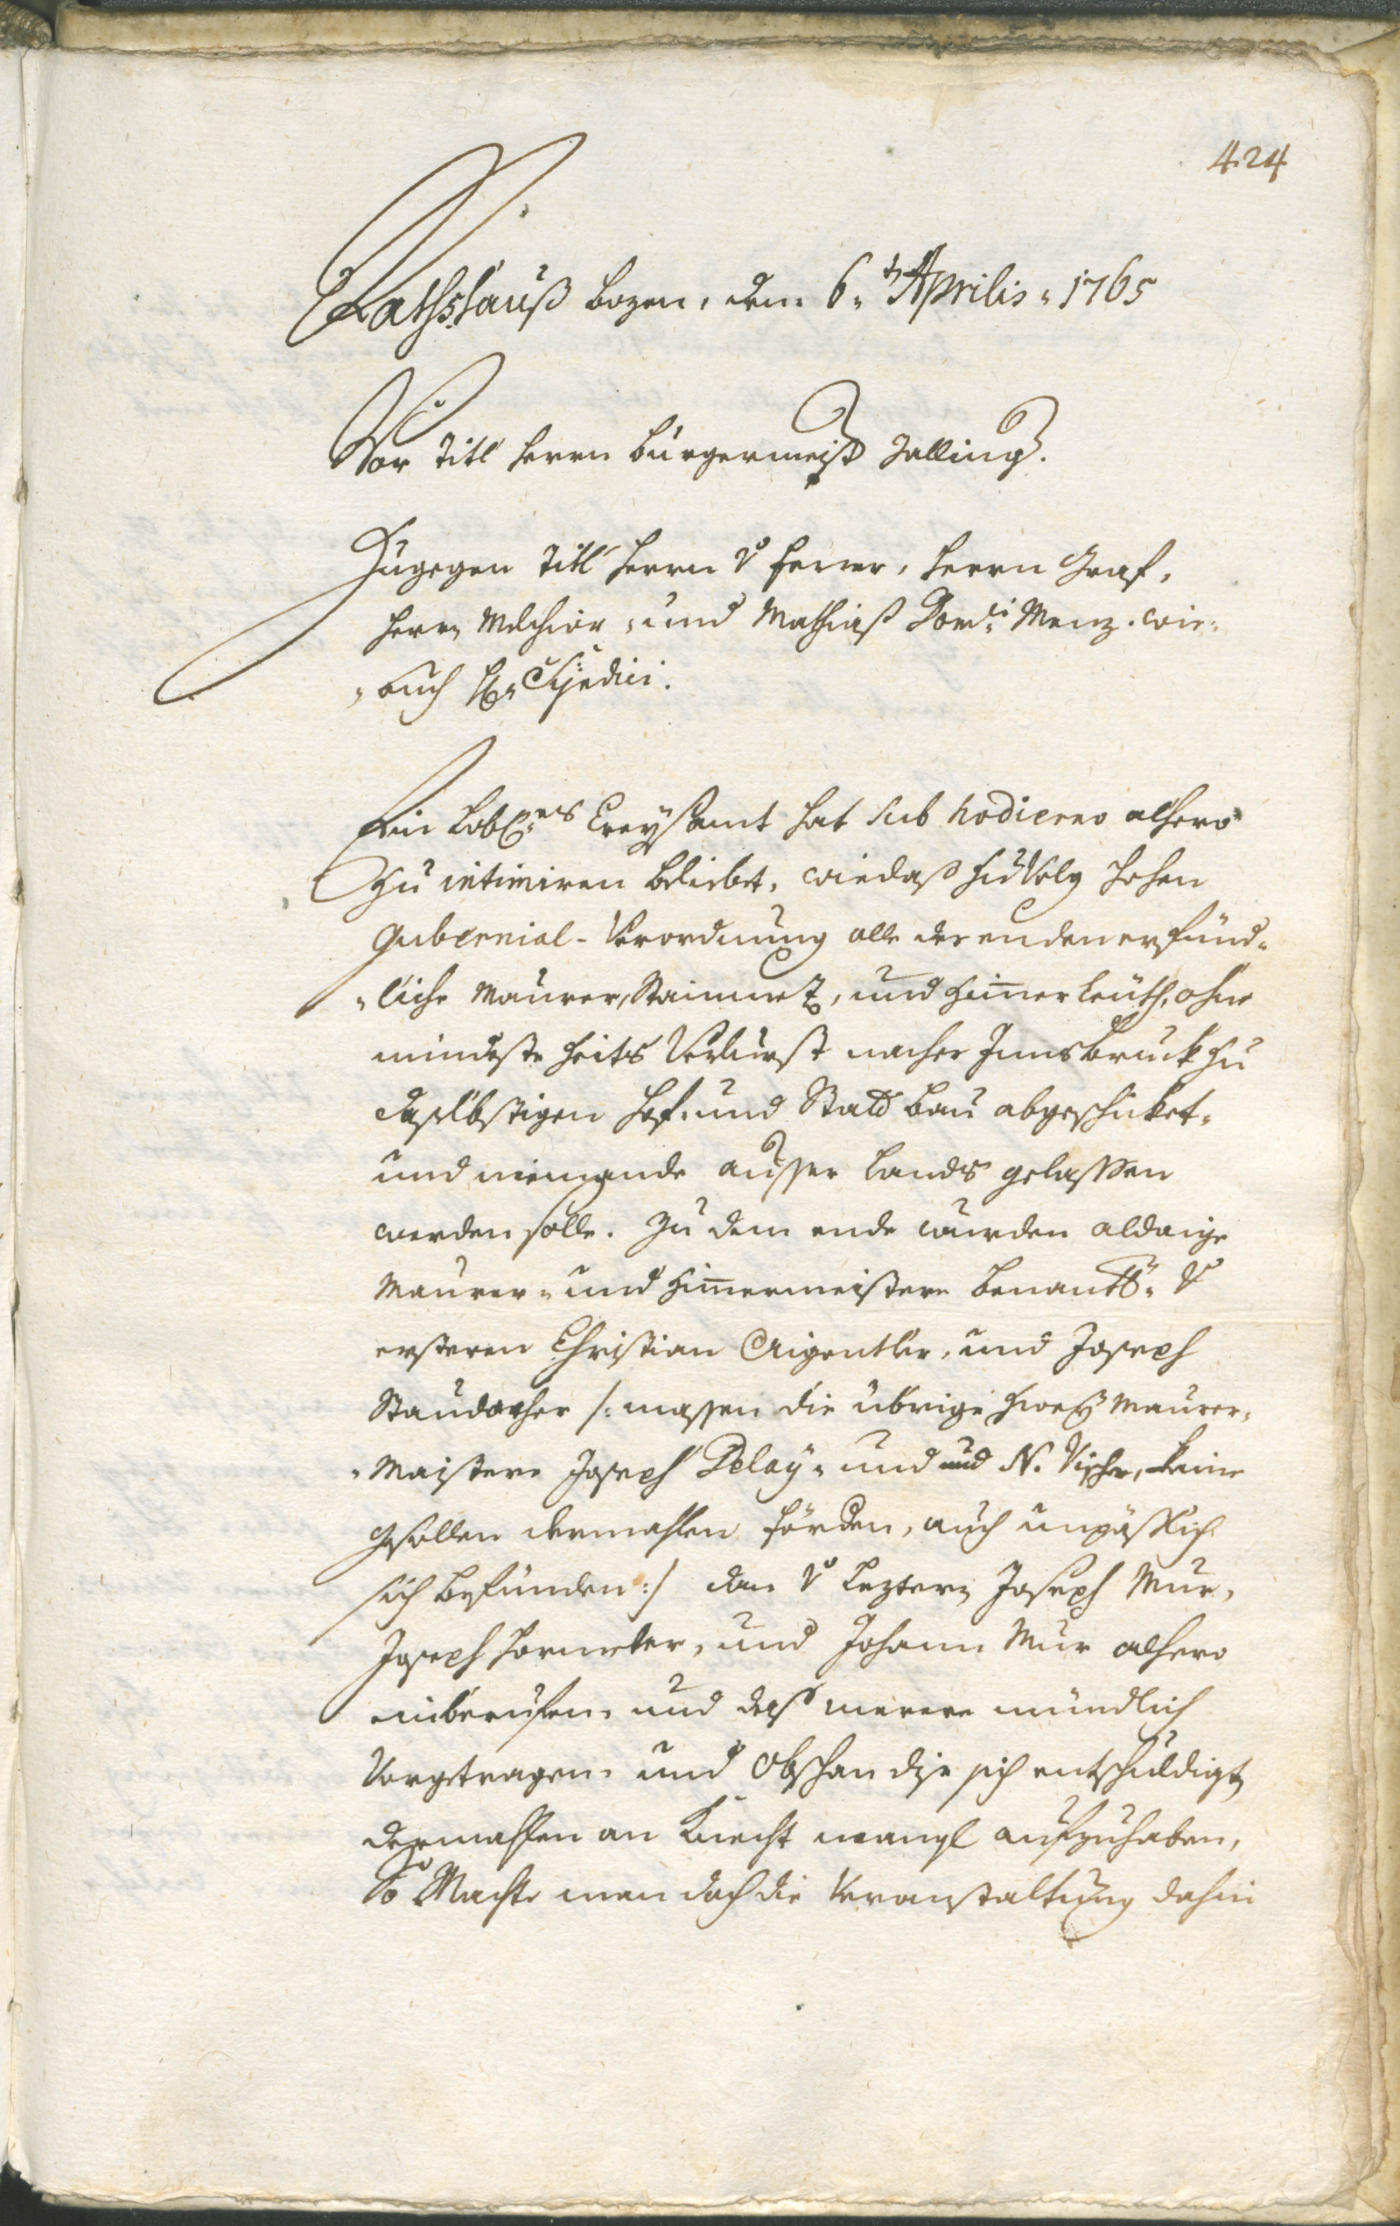 424
Rathshauß Bozen, den 6.t Aprilis 1765
Vor Titl Herrn Burgermeist Zalling.
Zugegen Titl Herrn v Ferrer, Herrn Graf,
Herrn Melchior, und Mathiaß Menz. wie„
„auch H. Syndici.
Ein Lobl. Creysamt hat sub hodierno alhero
zu intimiren beliebet, wiedaß zuvolg Hohen
Gubernial-Verordnung alle der enden erfünd„
„liche Maurer, Stainmez, und Zimerleuth, ohne
mindeste Zeits Verlurst nacher Innsbruck zu
daselbstigen Hof- und Statt Bau abgeschicket,
und niemande ausser Lands gelassen
werden solle. Zu dem ende wurden aldaige
Maurer- und Zimermeistere benantl. v
ersteren Christian Aigentler, und Joseph
Staudacher /: massen die übrige zwey Maurer„
„Maistere Joseph Delay, und und N. Vischer, keine
Gsöllen dermahlen förden, auch unpäßlich
sich befünden :/ dan v leztern Joseph Mur,
Joseph, und Johann Mur alhero
einberufen, und deß merere mündlich
Vorgetragen, und obschon dise sich entschuldigt
dermahlen an Knecht mangl aufzuhaben,
So Machte man doch die Veranstaltung dahin